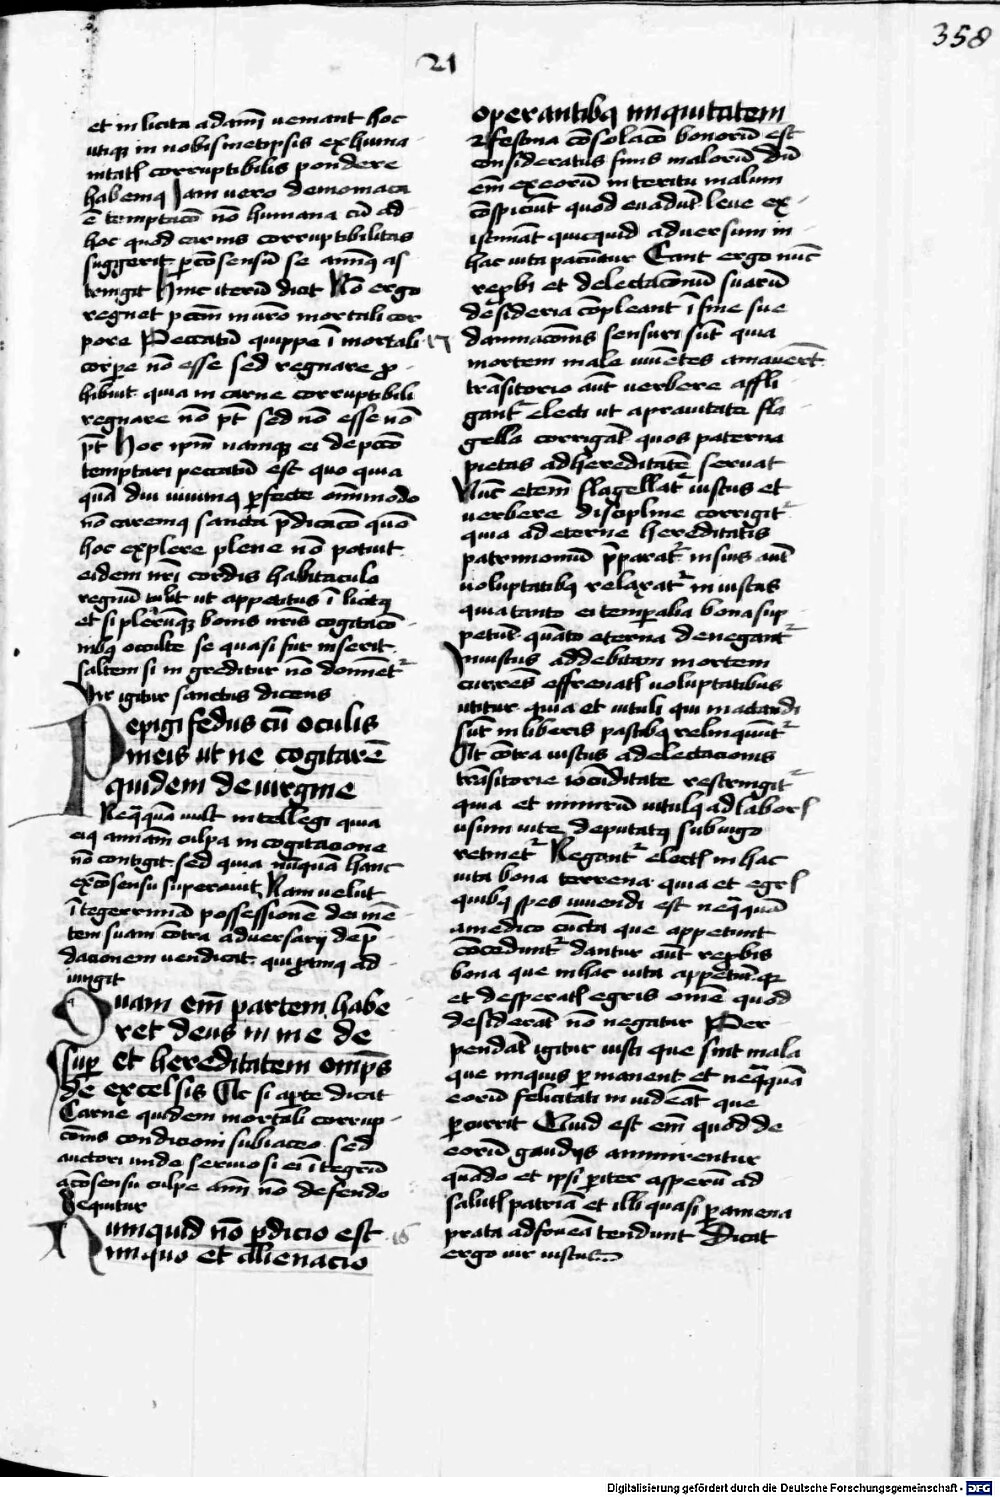 358
21
et in licita ad animū veniant hoc
utiqꝫ in nobismetipsis ex huma
nitatꝭ corruptibilis pondere
habemꝰ Iam vero demoniaca
ē temptacō nō humana cū ad
hoc quod carnis corruptibilitas
suggerit ꝑ cōsensū se animꝰ as
tringit Hinc iterū dicit Nō ergo
regnet pccm̄ in vr̄o mortali cor
pore Peccatū quippe ī mortali
corpe nō esse sed regnare ꝓ
hibuit quia in carne corruptibili
regnare nō pt̄ sed nō esse nō
pt̄ Hoc ipm̄ namqꝫ ei de pccō
temptari peccatū est quo quia
quā diu vivimꝰ ꝑfecte om̄imodo
nō caremꝰ sancta p̄dicacō quō
hoc explere plene nō potuit
eidem nr̄i cordis habitaculo
regnū tulit ut appetitus ī licitꝰ
et si plerūqꝫ bonis nr̄is cogitacō
nibꝰ occulte se quasi fur inserit
saltem si in greditur nō domnet᷑
Vir igitur sanctus dicens
Pepigi fedus cū oculis
meis ut ne cogitarē
quidem de virgine
Neq̄quā vult intellegi quia
eiꝰ animam culpa in cogitacione
nō contigit sed quia nūquā hanc
ex cōsensu superavit Nam velut
ī tegerrimā possessionē dei mē
tem suam cōtra adversarij dep̄
dacionem vendicat qui ꝓtinꝰ ad
iungit
Quam em̄ partem habe
ret deus in me de
suꝑ et hereditatem omp̄s
de excelsis Ac si apte dicat
Carne quidem mortali corrup
cōnis condicioni subiaceo sed
auctori unde servio si ei ī tegrū
a cōsensu culpe aīm nō defendo
Sequitur
Numquid nō ꝑdicio est 16
iniquo et allienacio
operantibꝰ iniquitatem
Festina cōsolacō bonorū est
cōsideratus finis malorū dū
em̄ ex eorū interitu malum
cōspiciūt quod evadūt leve ex
istimāt quicquid adversum in
hac vita paciūtur Eant ergo nūc
reꝓbi et delectacionū suarū
desideria cōpleant ī fine sue
17 damnacōnis sensuri sūt quia
mortem male viventes amaverūt
trāsitorio aūt verbere affli
gant᷑ electi ut a pravitate fla
gella corrigāt quos paterna
pietas ad hereditatē servat
Nūc etem̄ flagellat᷑ iustus et
verbere discipline corrigit᷑
quia ad eterne hereditatis
patrimoniū p̄parat᷑ in suis aūt
voluptatibꝰ relaxat᷑ iniustus
quia tanto ei temꝑalia bona sup
petūt quāto eterna denegant᷑
Iniustus ad debitam mortem
currēs effrenatꝭ voluptatibus
utitur quia et vituli qui mactandi
sūt in liberis pastibꝰ relinquūt᷑
At cōtra iustus a delectacionis
trāsitorie iocūditate restringit᷑
quia et nimirū vitulꝰ ad laborꝭ
usum vite deputatꝰ sub iugo
retinet᷑ Negant᷑ electꝭ in hac
vita bona terrena quia et egrꝭ
quibꝰ spes vivendi est neq̄quā
a medico cūcta que appetunt
cōcedunt᷑ dantur aūt reꝓbis
bona que in hac vita appetūt qꝛ
et desperatꝭ egris om̄e quod
desiderāt nō negatur Per
pendāt igitur iusti que sint mala
que iniquis ꝑ manent et neq̄quā
eorū felicitati invideāt que
ꝑcurrit Quid est em̄ quod de
eorū gaudijs ammirentur
quādo et ipsi ꝑiter asperū ad
salutꝭ patriā et illi quasi ꝑ amena
prata ad foveā tendunt Dicat
ergo vir iustus
Digitalisierung gefördert durch die Deutsche Forschungsgemeinschaft - DFG